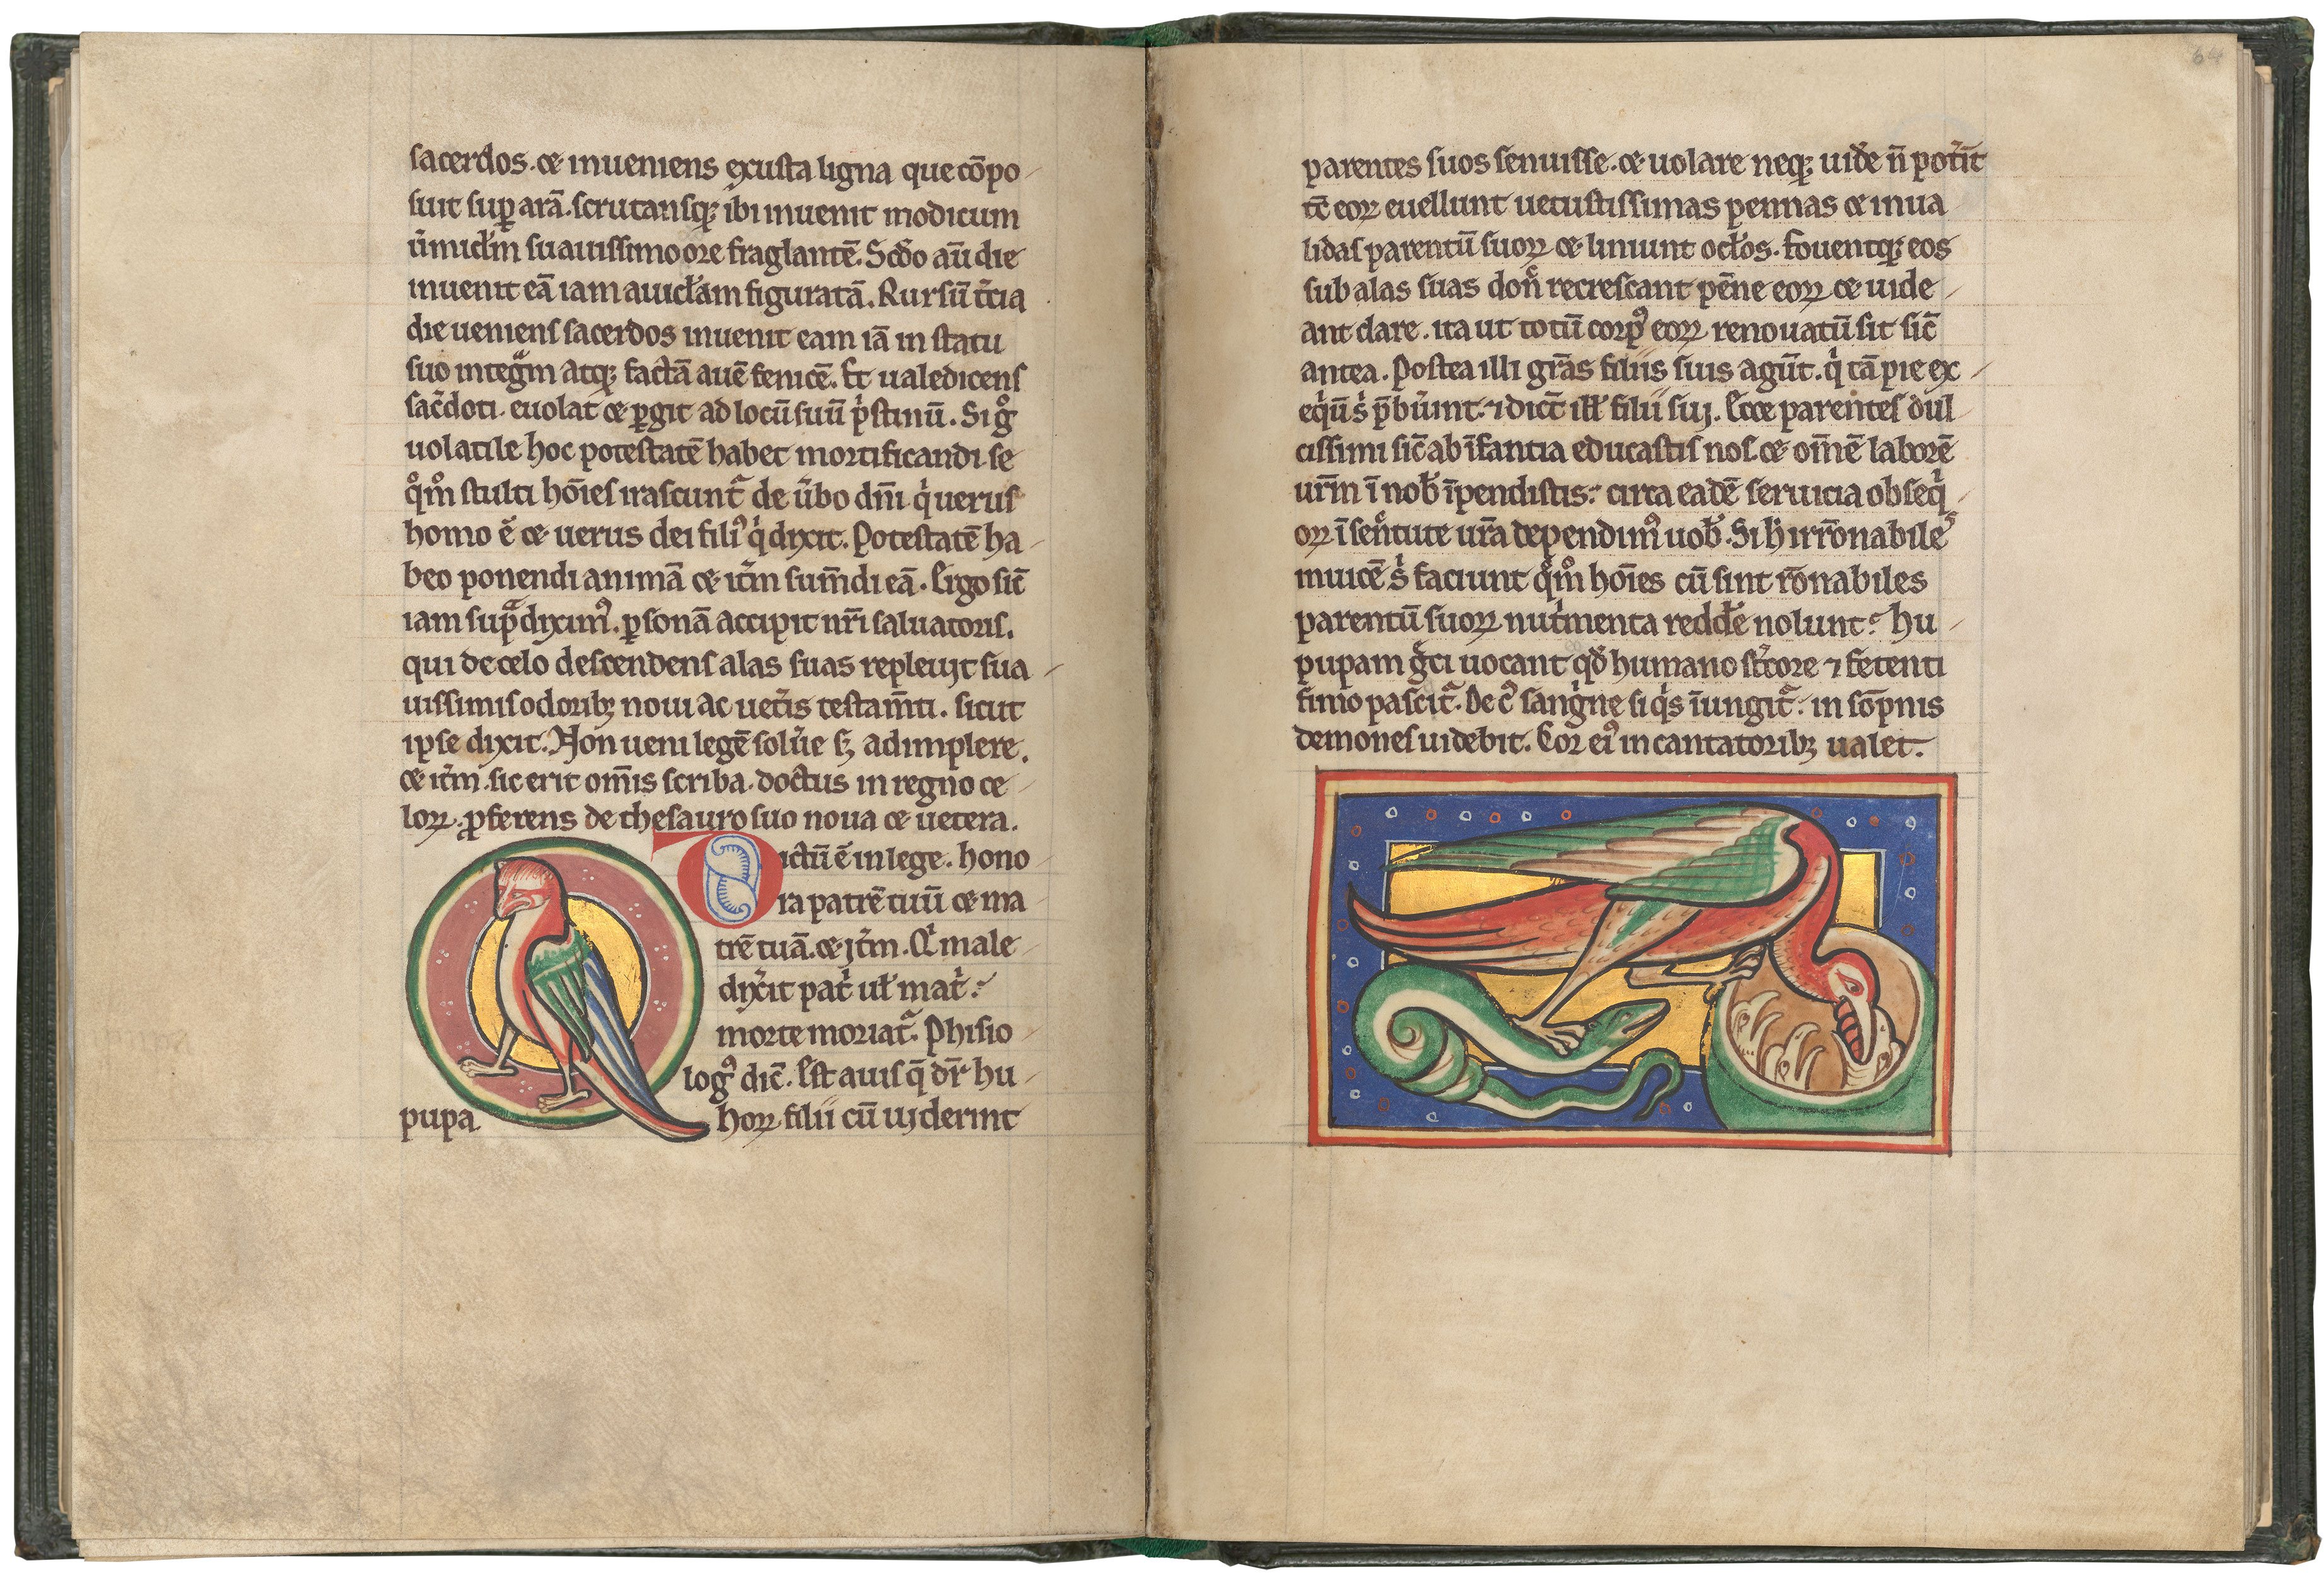 sacerdos. ⁊ inueniens exusta ligna que cōpo
suit sup̱ arā. scrutansq; ibi inuenit modicum
ỽmicl̄m suauissimo ore fraglantē. Scđo aū die
inuenit eā iam auicl̄am figuratā. Rursū t̾cia
die ueniens sacerdos inuenit eam iā in statu
suo integͣm atq; factā auē fenicē. Et ualedicens
sac̄doti. euolat ⁊ ꝑgit ad locū suū pͥstinū. Si gͦ
uolatile hoc potestatē habet mortificandi se
qͦmͦ stulti hōies irascunt᷑ de ūbo dn̄i qͥ uerus
homo ē ⁊ uerus dei filiꝰ qͥ dixit. Potestatē ha
beo ponendi animā ⁊ it̾m sum̄di eā. Ergo sic̄
iam supͣ diximꝰ. ꝑsonā accipit nr̄i saluatoris.
qui de celo descendens alas suas repleuit sua
uissimis odorib; noui ac uet̾is testam̄ti. sicut
ipse dixit. Non ueni legē solū̾e s; adimplere.
⁊ it̾m. sic erit om̄is scriba doctus in regno ce
loꝝ. ꝓferens de thesauro suo noua ⁊ uetera.
Dictū ē in lege. hono
ra patrē tuū ⁊ ma
trē tuā. ⁊ it̾m. Qͥ male
dix̾it patͥ ul̄ matͥ.
morte moriat᷑. Phisio
logꝰ dic̄. Est auis q̄ dr̄ hu
pupa hoꝝ filii cū uiderint
64
parentes suos senuisse. ⁊ uolare neq; uid̾e n̄ pot̾it
tc̄ eoꝝ euellunt uetustissimas pennas ⁊ inua
lidas parentū suoꝝ ⁊ liniunt ocl̄os. fouentq; eos
sub alas suas don̾ recrescant pēne eoꝝ ⁊ uide
ant clare. ita ut totū corpꝰ eoꝝ renouatū sit sic̄
antea. Postea illi gr̄as filiis suis agūt. qͥ tā pie ex
eqͥūs̾ p̄būnt. ⁊ dict̄ ill̄ filii sui. Ecce parentes dul
cissimi sic̄ ab īfantia educastis nos. ⁊ om̄ē laborē
ur̄m ī nob̾ īpendistis. circa eadē seruicia obseqͥ
oꝝ ī sen̾tute ur̄a dependimꝰ uob̾. Si h̾ irr̄onabile
inuicē s̾ faciunt qͦmͦ hōies cū sint r̄onabiles
parentū suoꝝ nut̾menta redd̾e nolunt. hu
pupam gͣci uocant qđ humano st̾core ⁊ fetenti
fimo pascit᷑. De cꝰ sangͥne si qͥs īungit᷑. in sōpnis
demones uidebit. Cor eiꝰ incantatorib; ualet.